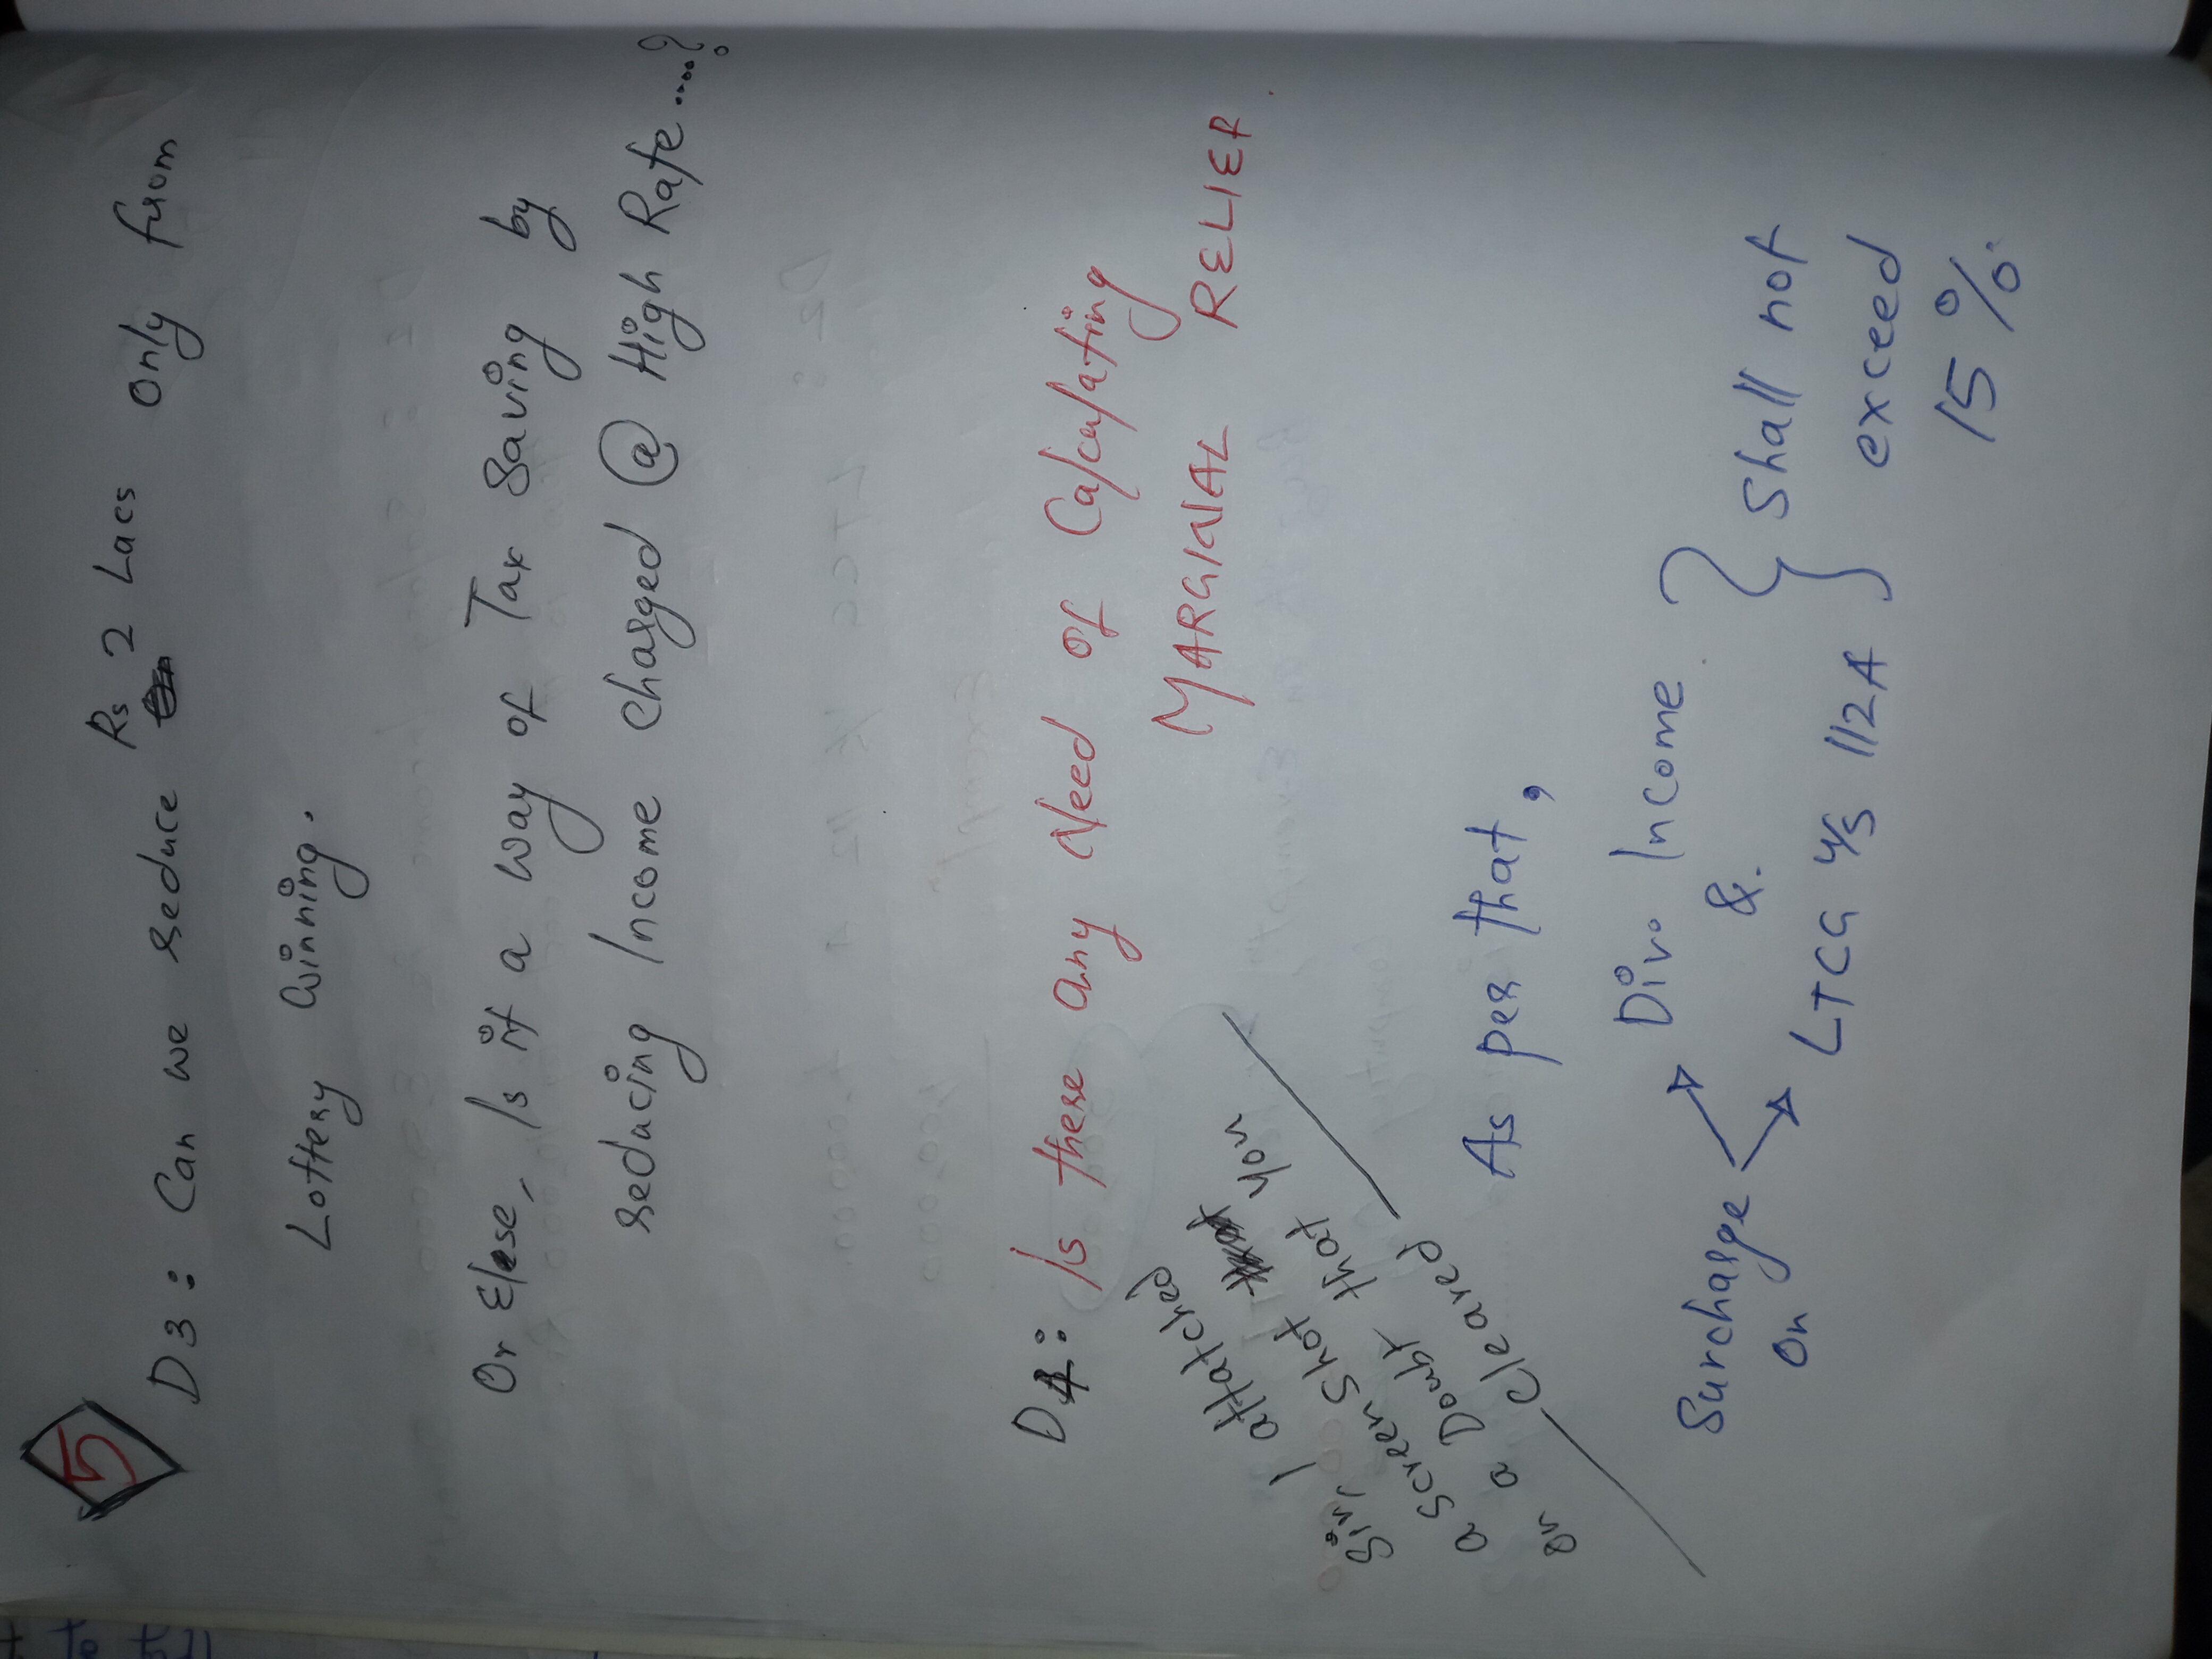 5
D3: Can we reduce Rs 2 Lacs only from
Lottery winning.
Or Else, Is it a way of Tax Saving by
reducing Income charged @ High Rate....?
D4: Is there any Need of Calculating
MARGINAL RELIEF
Sir, I attatched
a screen shot
on a Doubt that you
cleared
As per that,
Surcharge on
Div. Income
&
LTCG u/s 112A
Shall not
exceed
15%.